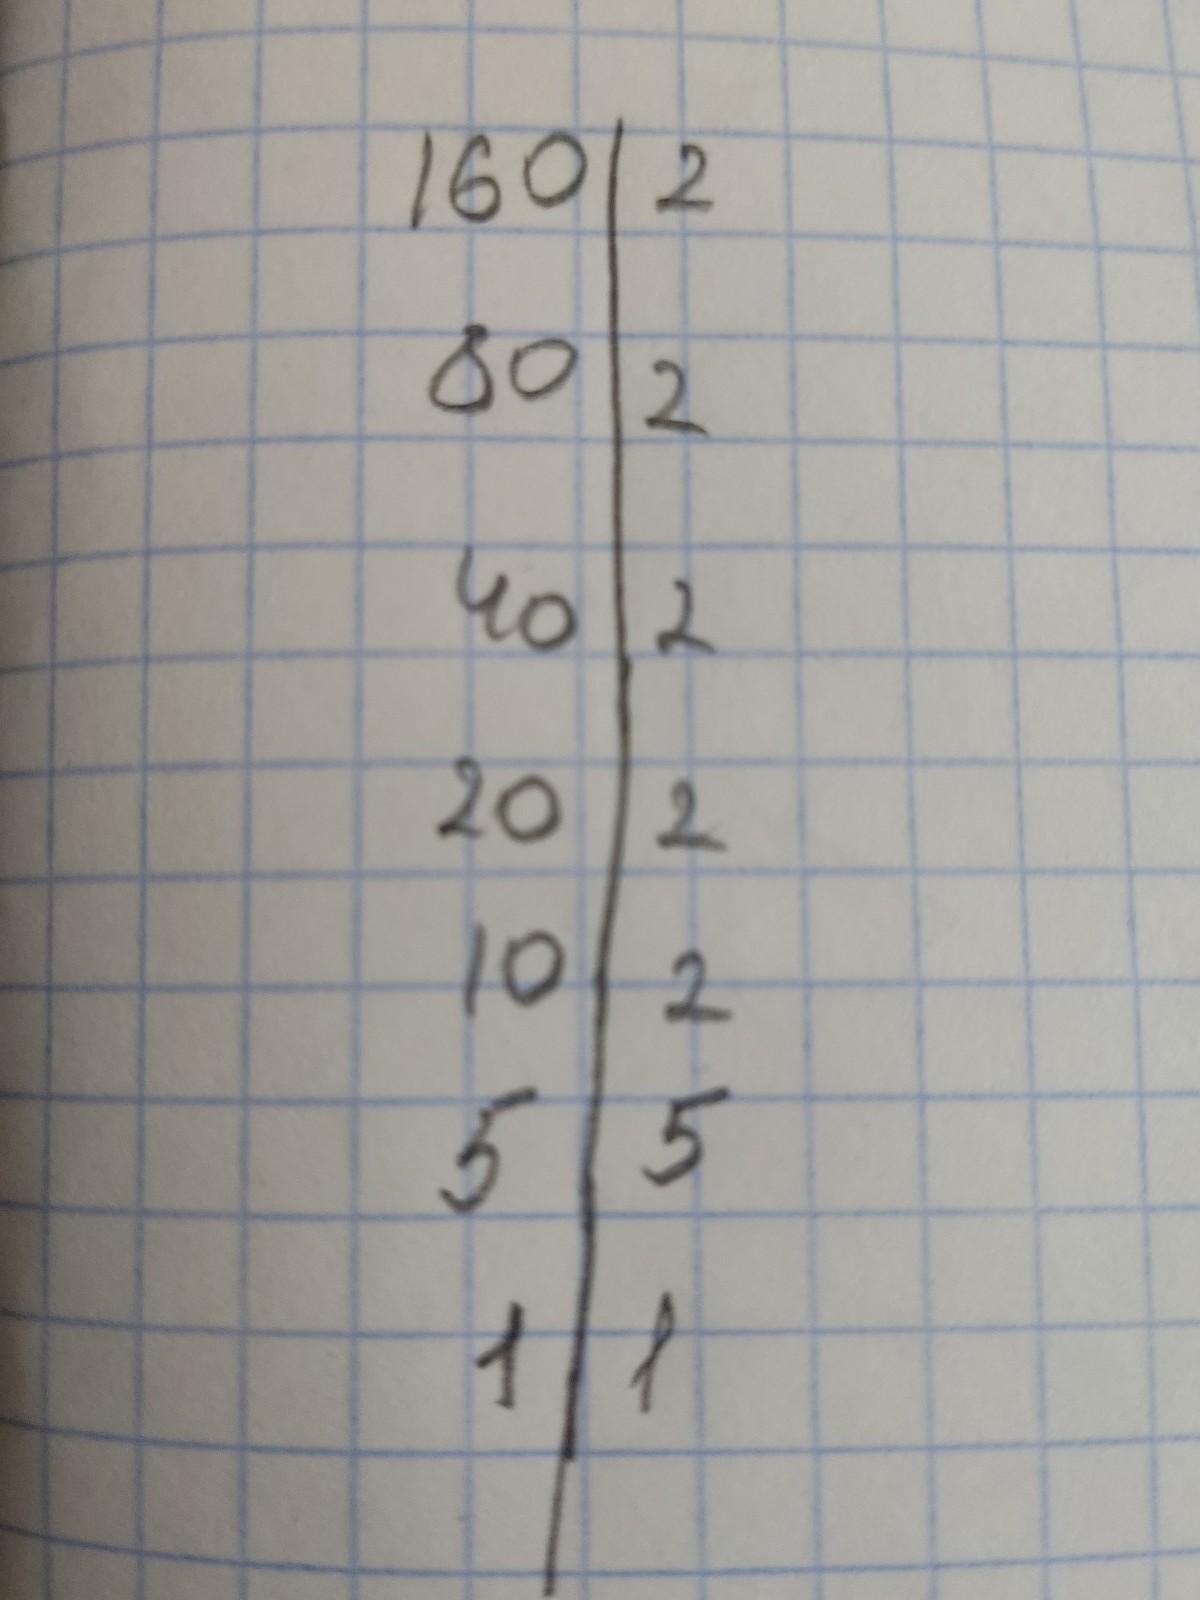 160 | 2
80 | 2
40 | 2
20 | 2
10 | 2
5 | 5
1 | 1